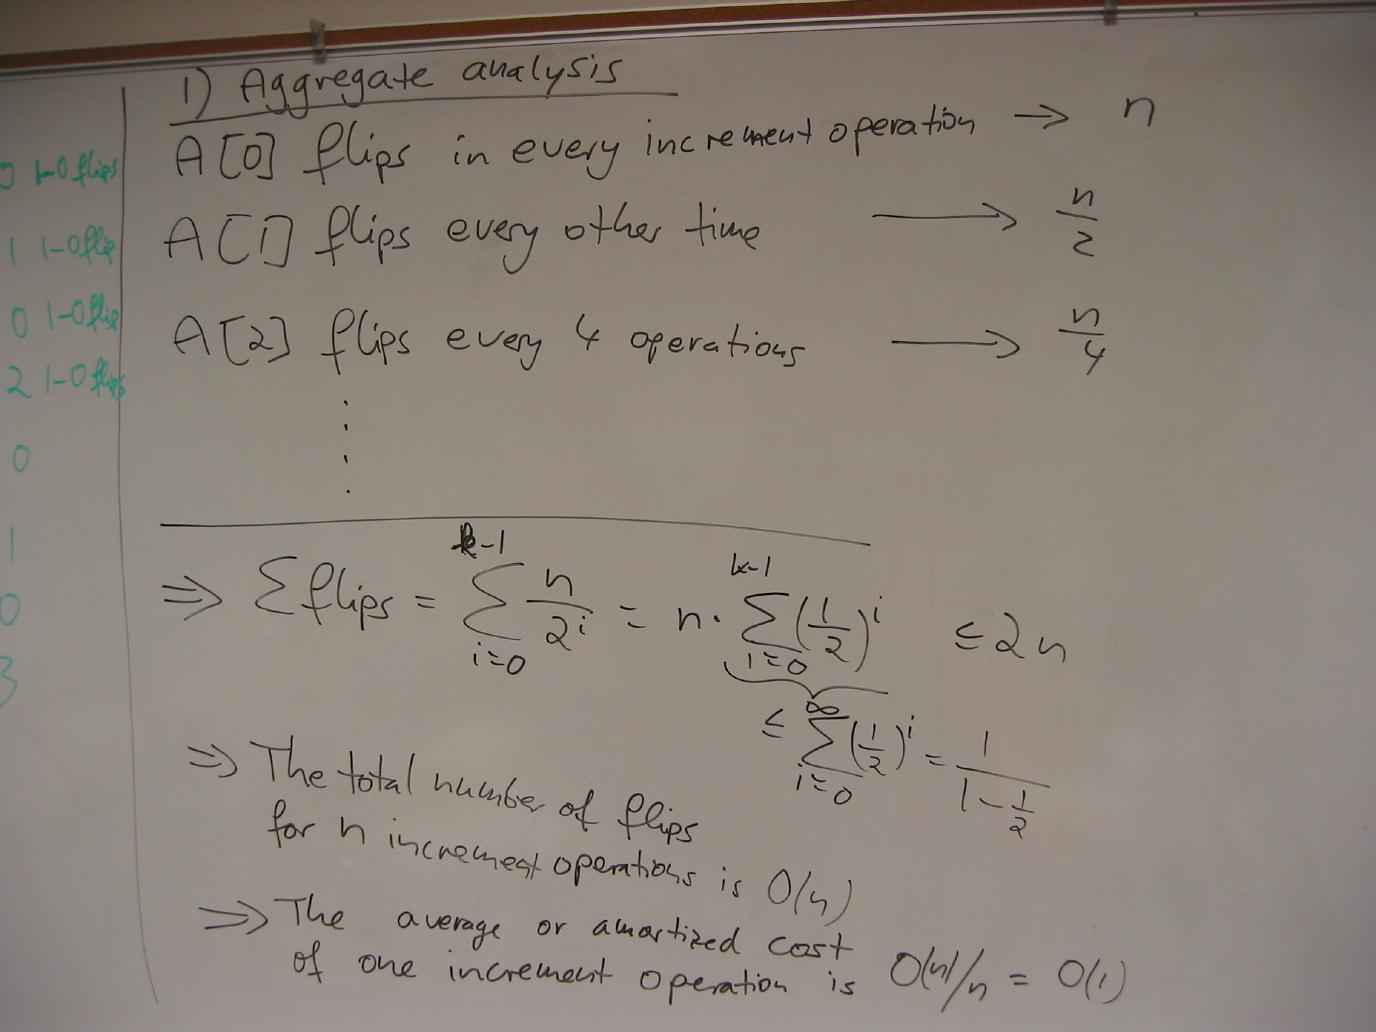 0 1-0 flips
1 1-0 flip
0 1-0 flip
2 1-0 flips
0
1
0
3
1) Aggregate analysis
A[0] flips in every increment operation → n
A[1] flips every other time → n/2
A[2] flips every 4 operations → n/4
⋮
⇒ Σ flips = Σ_{i=0}^{k-1} n/2^i = n · Σ_{i=0}^{k-1} (1/2)^i ≤ 2n
≤ Σ_{i=0}^{∞} (1/2)^i = 1/(1 - 1/2)
⇒ The total number of flips
for n increment operations is O(n)
⇒ The average or amortized cost
of one increment operation is O(n)/n = O(1)